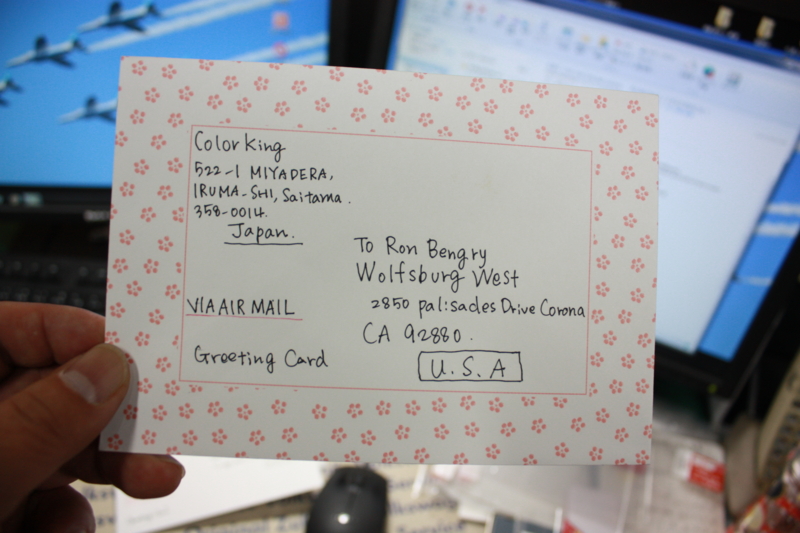 Color King
522-1 MIYADERA,
IRUMA-SHI, Saitama.
358-0014.
Japan.
To Ron Bengry
Wolfsburg West
2850 palisades Drive Corona
CA 92880.
U.S.A
VIA AIR MAIL
Greeting Card